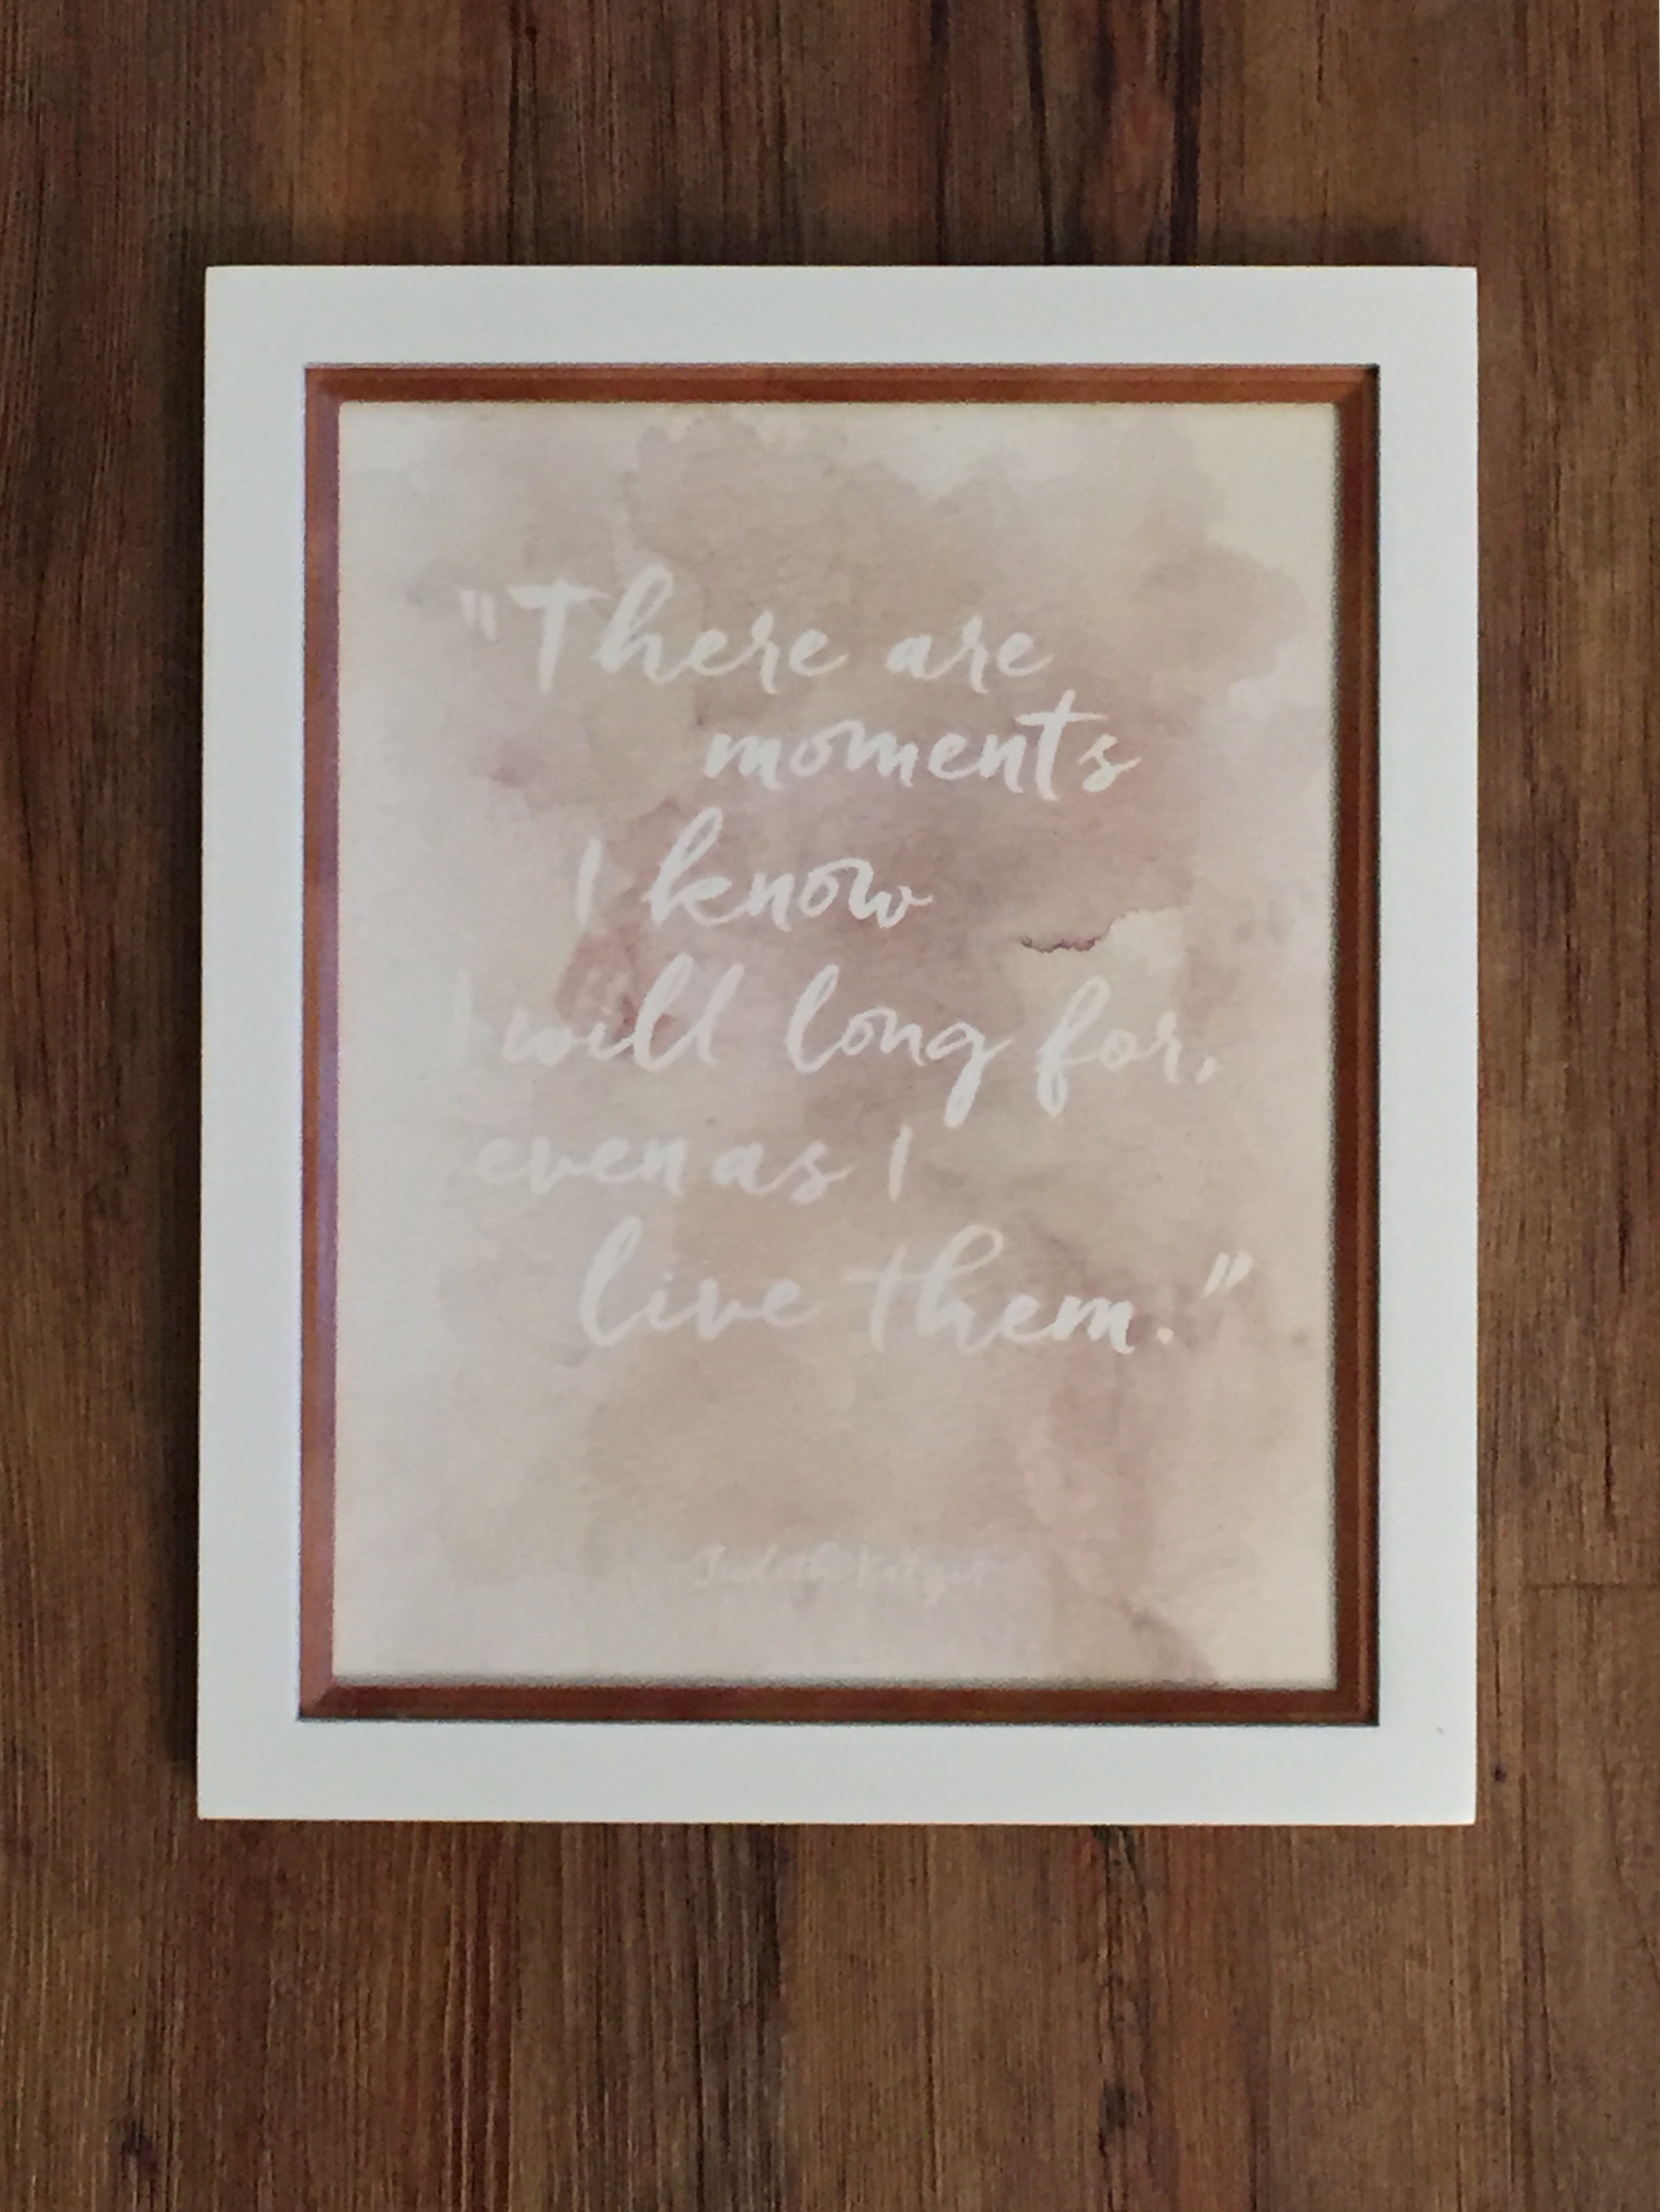 "There are
moments
I know
I will long for,
even as I
live them."
Judith Katzir